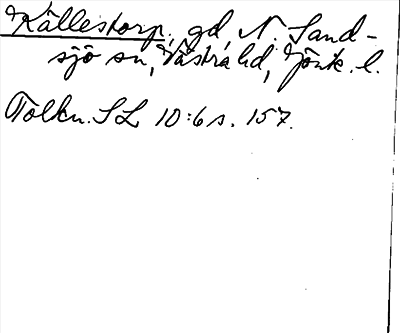 Källestorp, gd, N. Sand-
sjö sn, Västra hd, Jönk. l.
Tolkn. SL 10:6 s. 157.